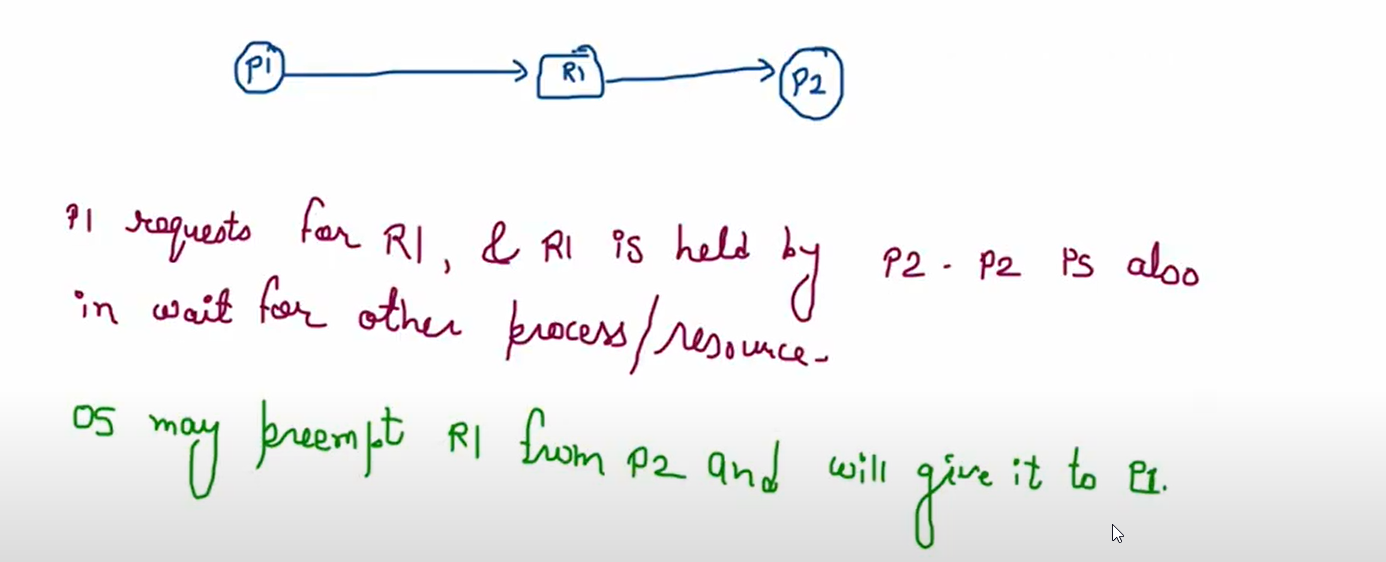 P1 R1 P2
P1 requests for R1, & R1 is held by P2. P2 is also
in wait for other process/resource.
OS may preempt R1 from P2 and will give it to P1.